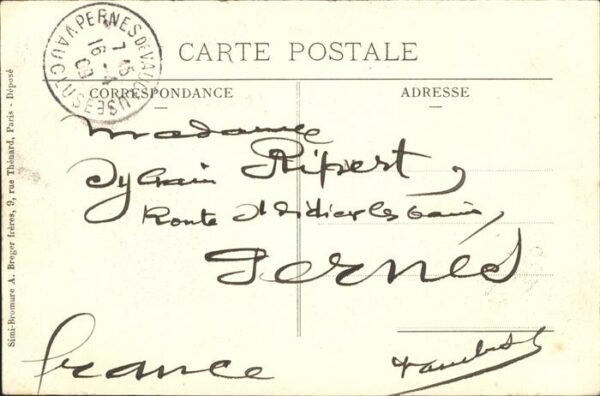 CARTE POSTALE
CORRESPONDANCE
ADRESSE
PERNES DE VAUCLUSE
VAUCLUSE
7 15
16
09
Madame
Sylvain Ripert,
Route St Didier les bains,
Pernes
France
Vaucluse
Simi-Bromure A. Breger frères, 9, rue Thénard, Paris - Déposé